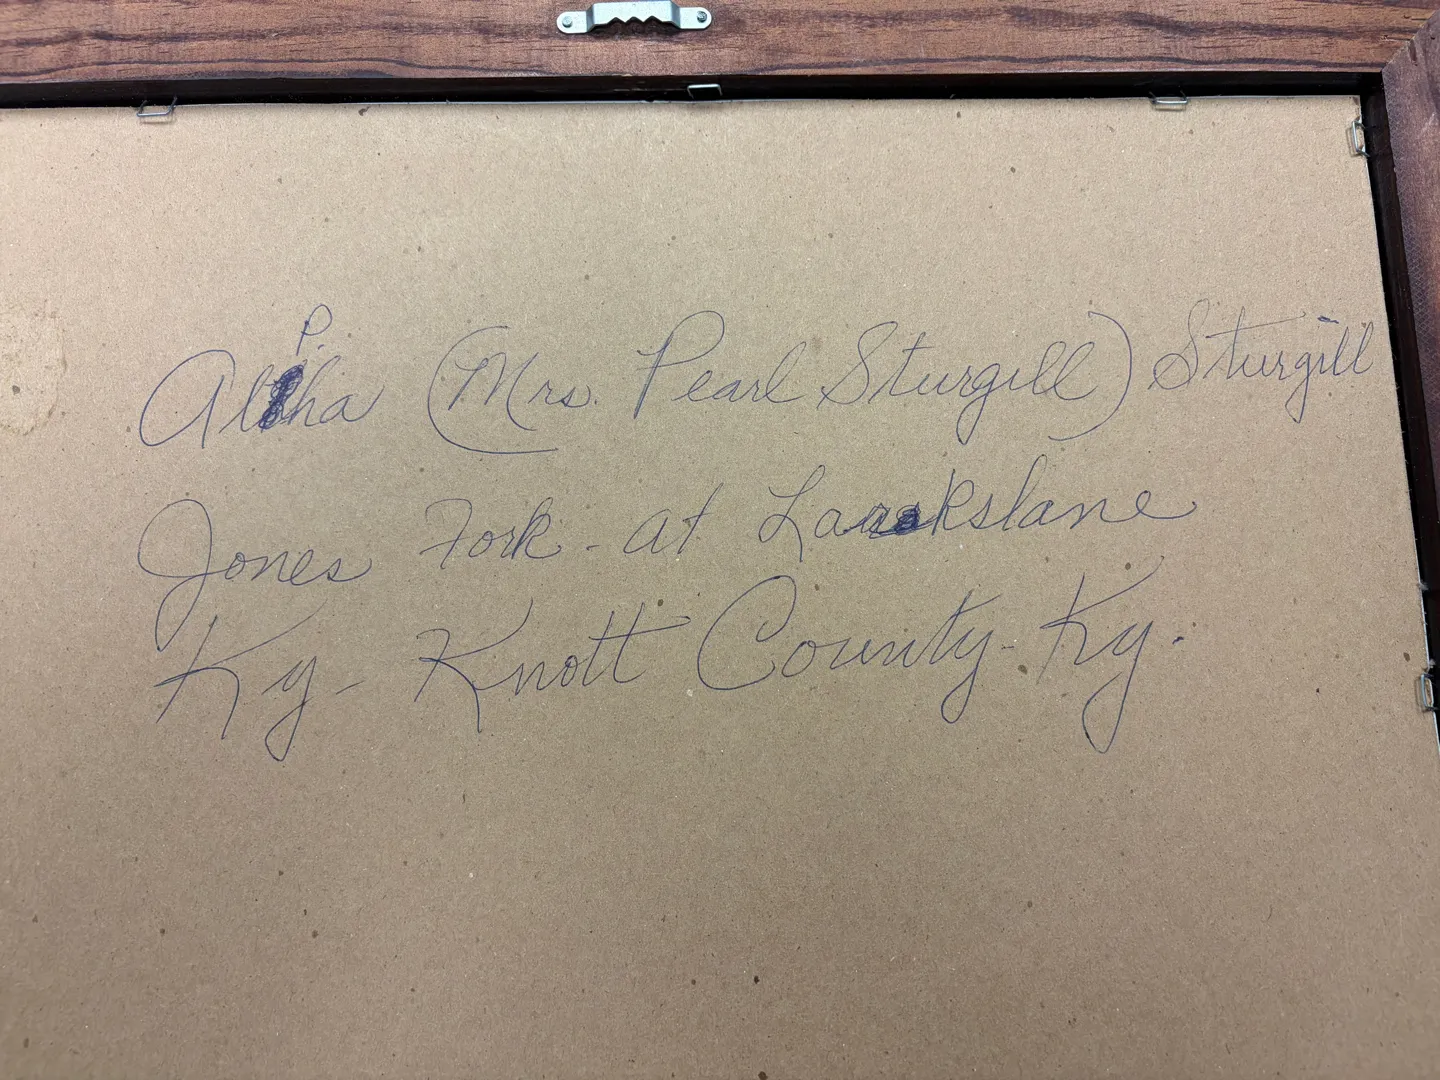 Alpha (Mrs. Pearl Sturgill) Sturgill
Jones Fork - at Larkslane
Ky - Knott County - Ky.